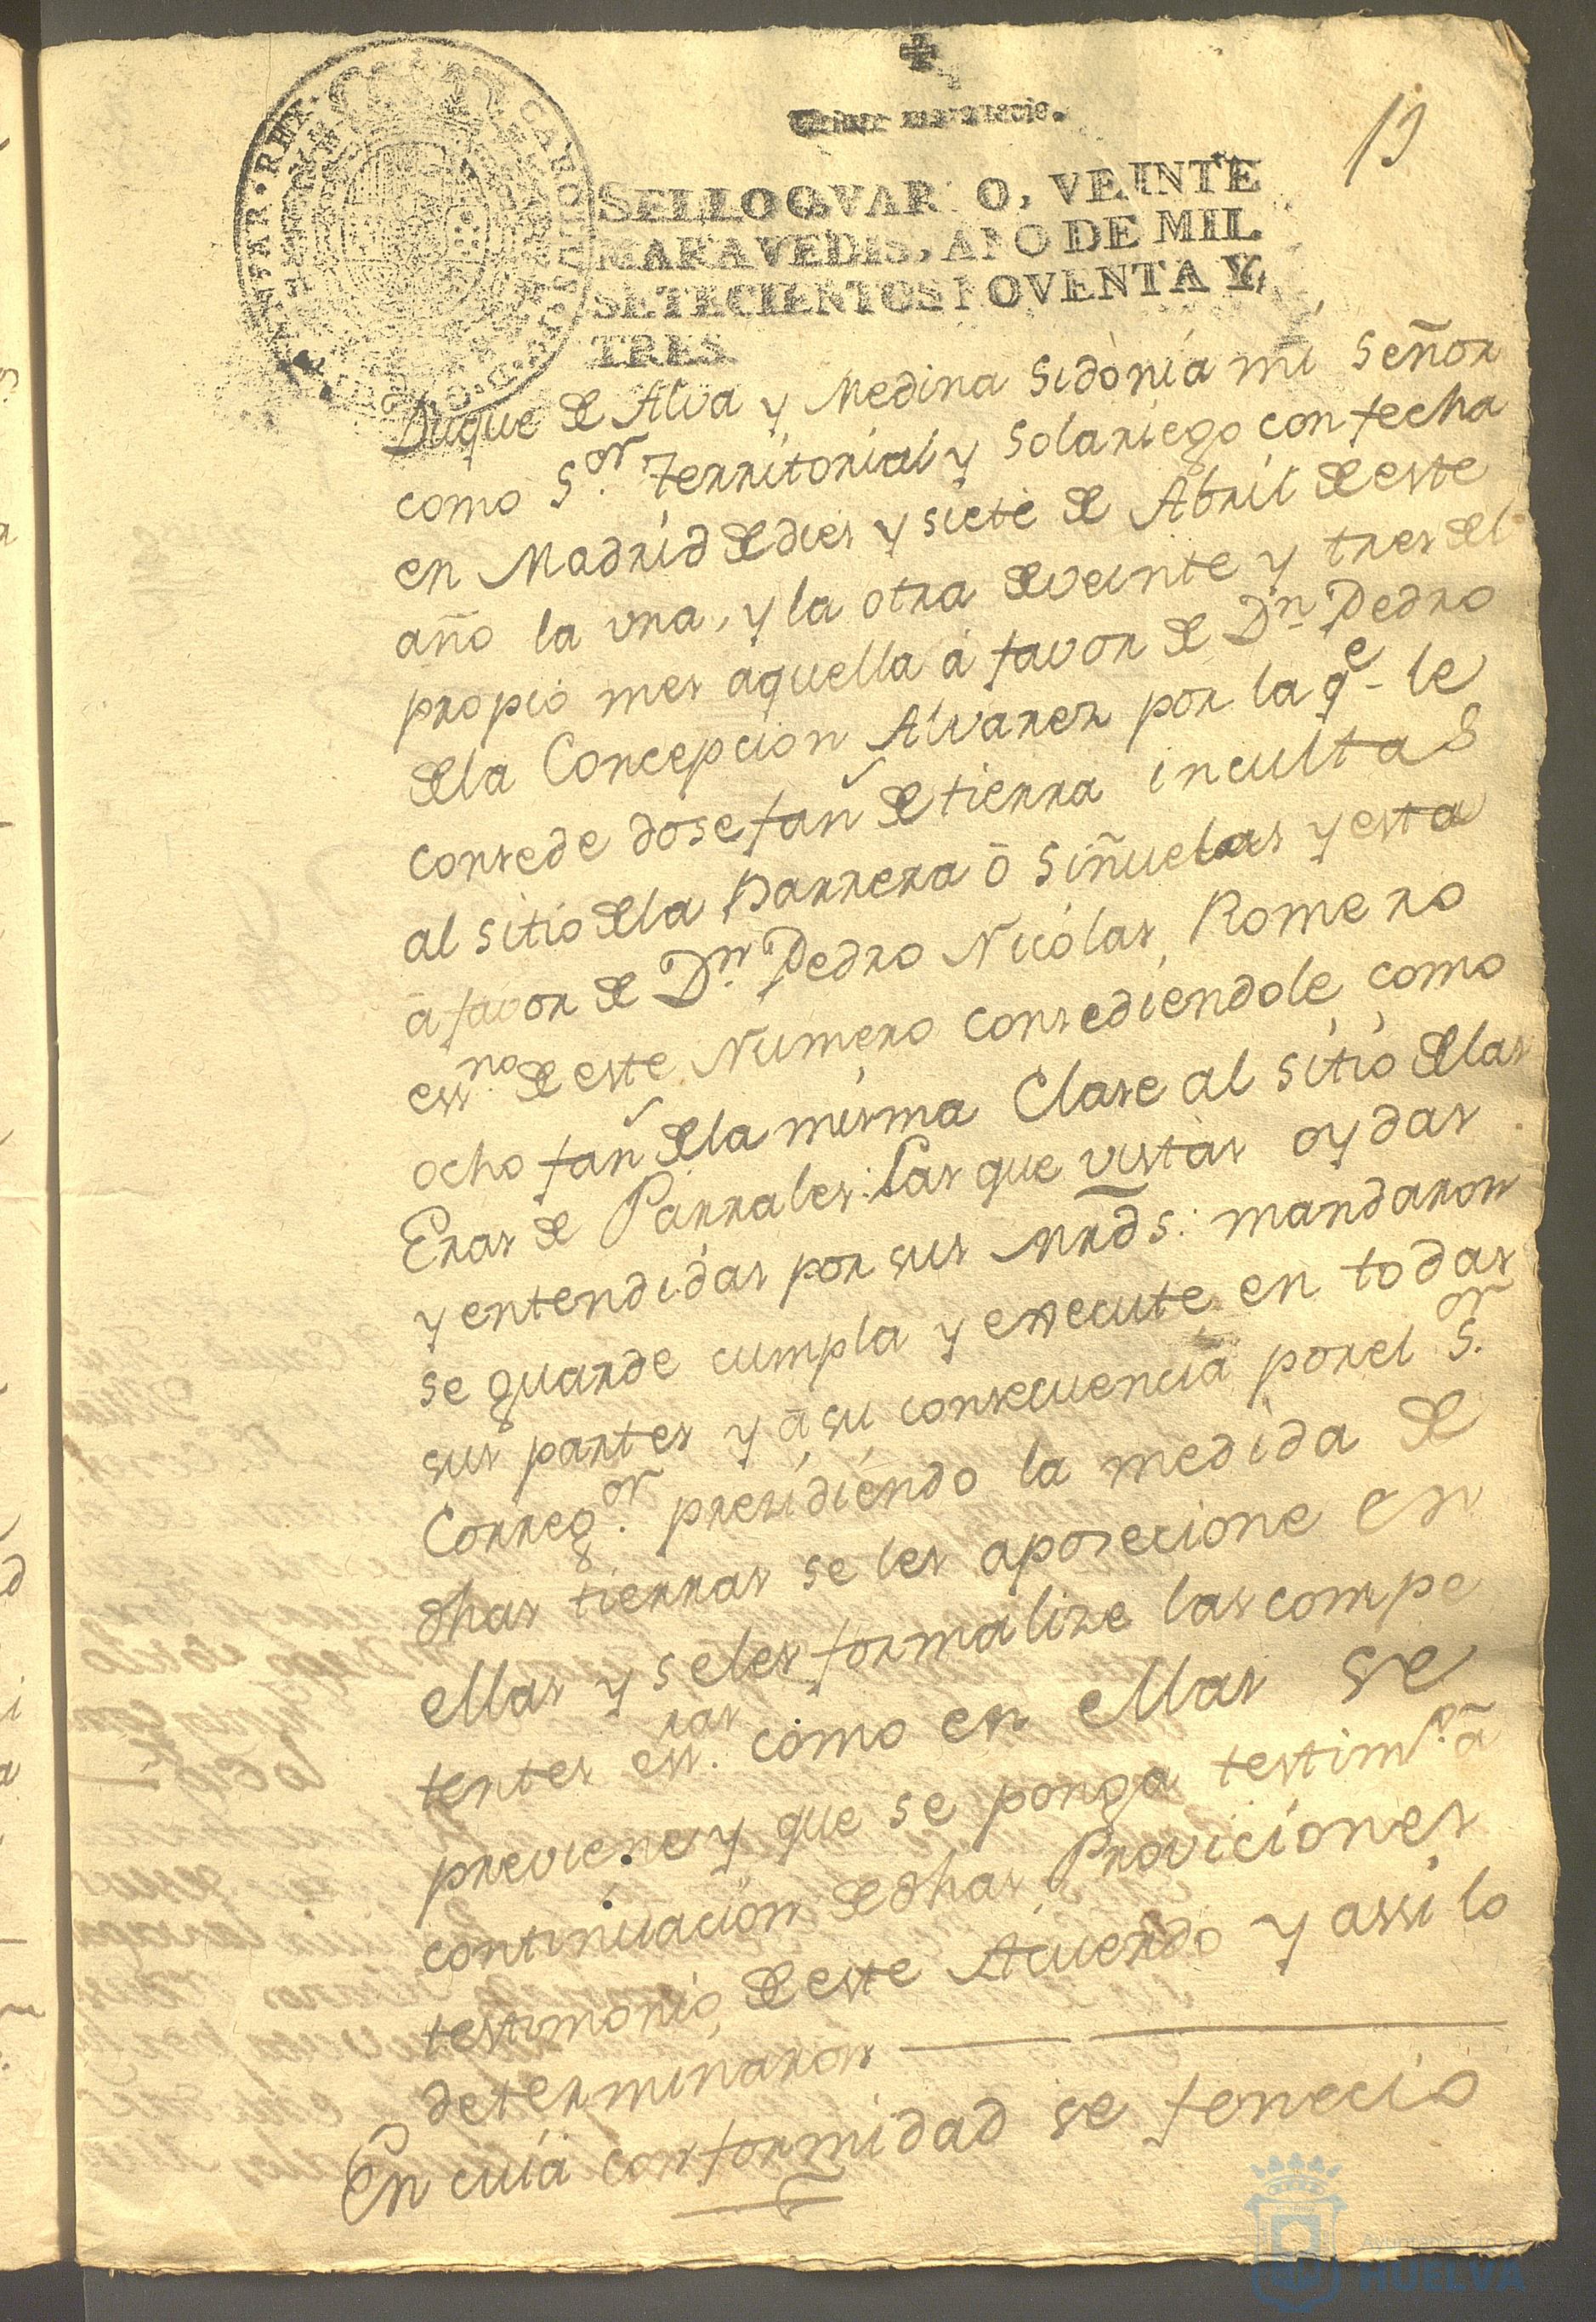 Veinte maravedis.
19
SELLO QVARTO, VEINTE
MARAVEDIS, AÑO DE MIL
SETECIENTOS NOVENTA Y
TRES
Duque de Alva y Medina Sidonia mi Señor
como S.or Territorial y Solariego con fecha
en Madrid de dies y siete de Abril de este
año la una, y la otra de veinte y tres del
propio mes aquella á favor de Dn. Pedro
de la Concepcion Alvarez por la qe. le
consede dose fan de tierra incultas
al sitio de la Barrera ō Siñuelas y esta
ā favor de Dn. Pedro Nicolas Romero
essno. de este Numero consediendole como
ocho fan de la misma Clase al sitio de las
Eras de Parrales: Las que vistas oydas
y entendidas por sus Mrds: mandaron
se guarde cumpla y execute en todas
sus partes y ā su consecuencia por el S.or
Correg.or presidiendo la medida de
dhas tierras se les aposecione en
ellas y seles formalize las compe
tentes ess.ras como en ellas se
previene y que se ponga testim.o ā
continuacion de dhas Proviciones
testimonio de este Acuerdo y assi lo
determinaron
En cuia conformidad se feneció
HUELVA